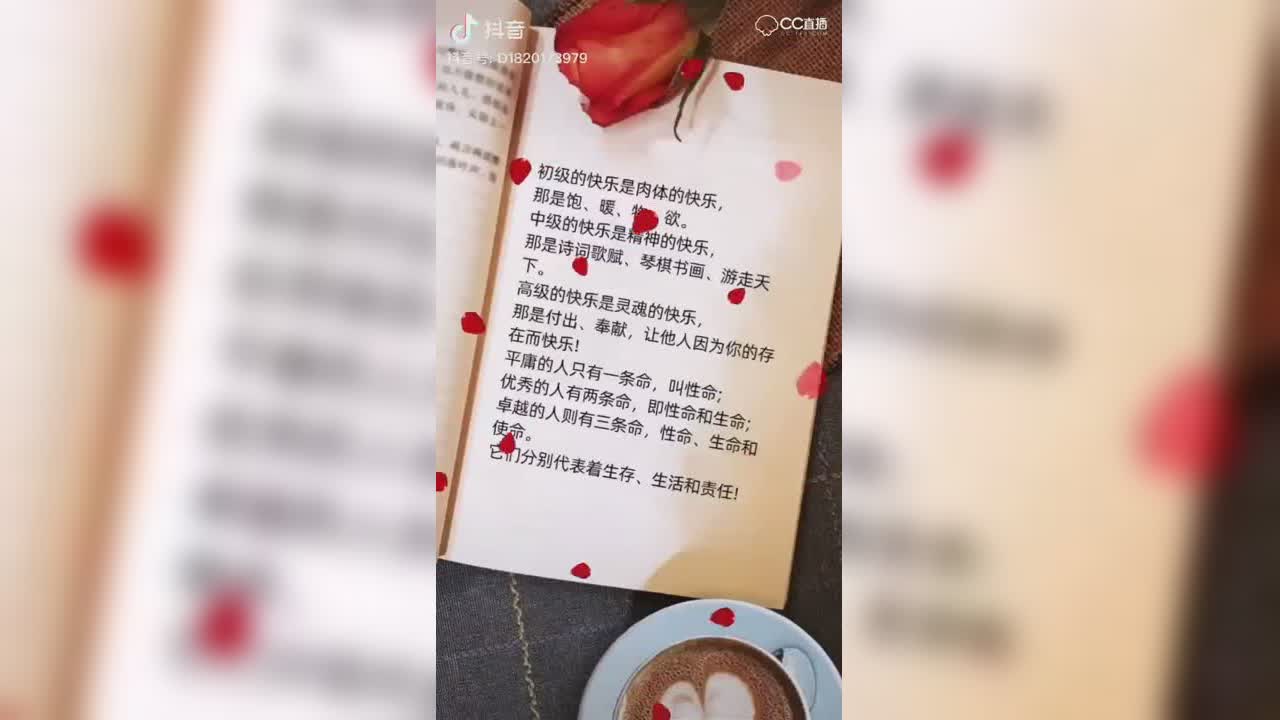 抖音
抖音号: D1820173979
CC直播
初级的快乐是肉体的快乐,
那是饱、暖、物、欲。
中级的快乐是精神的快乐,
那是诗词歌赋、琴棋书画、游走天
下。
高级的快乐是灵魂的快乐,
那是付出、奉献，让他人因为你的存
在而快乐!
平庸的人只有一条命，叫性命;
优秀的人有两条命，即性命和生命;
卓越的人则有三条命，性命、生命和
使命。
它们分别代表着生存、生活和责任!